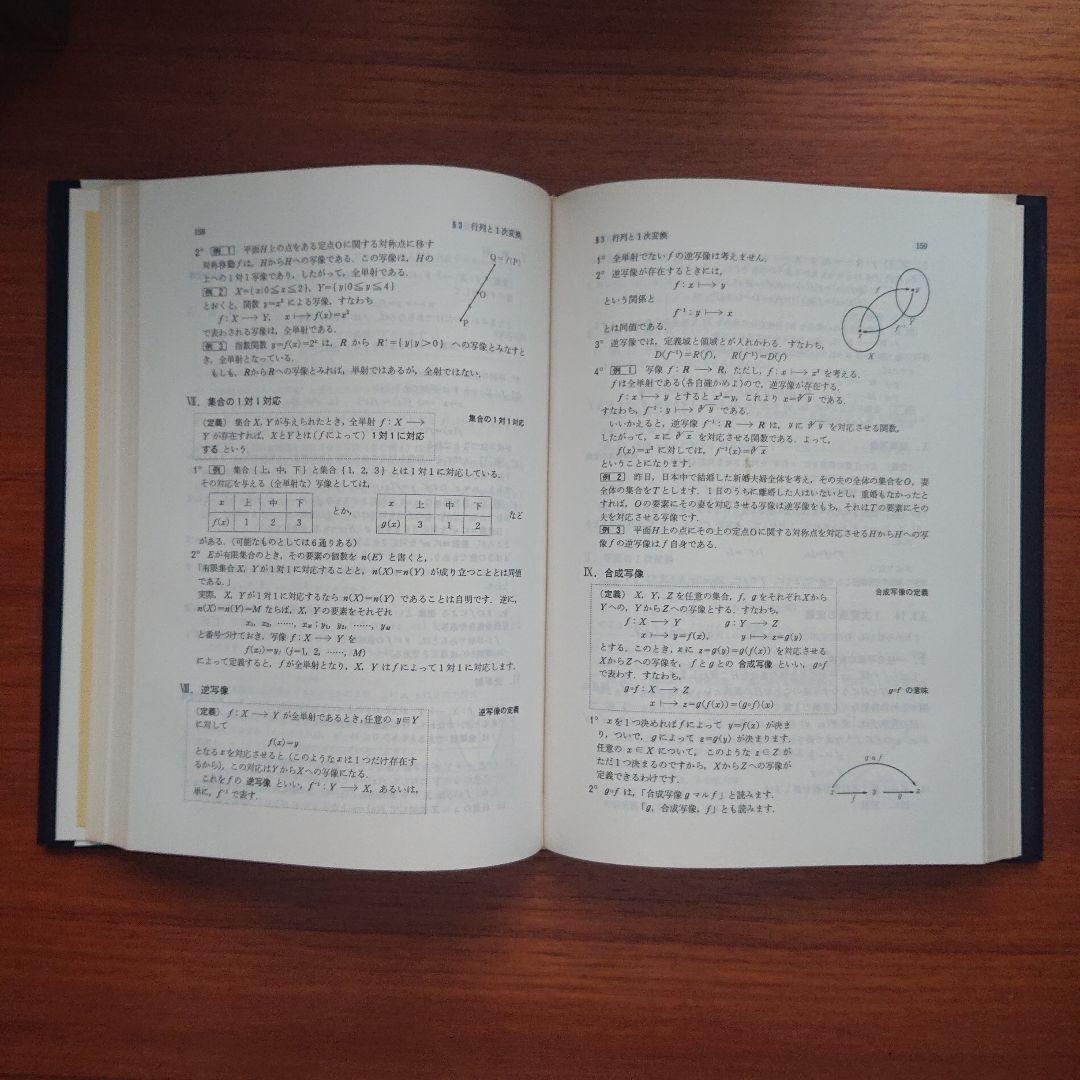 158
§3 行列と1次変換
2° 例1 平面H上の点をある定点Oに関する対称点に移す
対称移動fは,HからHへの写像である.この写像は,Hの
上への1対1写像であり,したがって,全単射である.
Q=f(P)
O
P
例2 X={x|0≦x≦2}, Y={y|0≦y≦4}
とおくと,関数 y=x² による写像,すなわち
f: X ⟶ Y, x ⟼ f(x)=x²
で表わされる写像は,全単射である.
例3 指数関数 y=f(x)=2ˣ は,R から R⁺={y|y>0} への写像とみなすと
き,全単射となっている.
もしも,RからRへの写像とみれば,単射ではあるが,全射ではない.
Ⅶ.集合の1対1対応
(定義) 集合X, Yが与えられたとき,全単射 f: X ⟶
Y が存在すれば,XとYとは(fによって)1対1に対応
する という.
集合の1対1対応
1° 例 集合{上,中,下}と集合{1, 2, 3}とは1対1に対応している.
その対応を与える(全単射な)写像としては,
x 上 中 下
f(x) 1 2 3
とか,
x 上 中 下
g(x) 3 1 2
など
がある.(可能なものとしては6通りある)
2° Eが有限集合のとき,その要素の個数を n(E) と書くと,
「有限集合X, Yが1対1に対応することと,n(X)=n(Y) が成り立つこととは同値
である.」
実際,X, Yが1対1に対応するなら n(X)=n(Y) であることは自明です.逆に,
n(X)=n(Y)=M ならば,X, Yの要素をそれぞれ
x₁, x₂, ……, x_M ; y₁, y₂, ……, y_M
と番号づけておき,写像 f: X ⟶ Y を
f(xⱼ)=yⱼ (j=1, 2, ……, M)
によって定義すると,fが全単射となり,X, Y はfによって1対1に対応します.
Ⅷ.逆写像
(定義) f: X ⟶ Y が全単射であるとき,任意の y∈Y
に対して
f(x)=y
となるxを対応させると(このようなxは1つだけ存在す
るから),この対応はYからXへの写像になる.
これをfの 逆写像 といい,f⁻¹: Y ⟶ X, あるいは,
単に,f⁻¹ で表す.
逆写像の定義
§3 行列と1次変換
159
1° 全単射でないfの逆写像は考えません.
2° 逆写像が存在するときには,
f: x ⟼ y
という関係と
f⁻¹: y ⟼ x
とは同値である.
3° 逆写像では,定義域と値域とが入れかわる.すなわち,
D(f⁻¹)=R(f), R(f⁻¹)=D(f)
f
y
x
f⁻¹
X
4° 例1 写像 f: R ⟶ R, ただし,f: x ⟼ x³ を考える.
fは全単射である(各自確かめよ)ので,逆写像が存在する.
f: x ⟼ y とすると x³=y, これより x=∛y である.
すなわち,f⁻¹: y ⟼ ∛y である.
いいかえると,逆写像 f⁻¹: R ⟶ R は,yに ∛y を対応させる関数,
したがって,xに ∛x を対応する関数である.よって,
f(x)=x³ に対しては,f⁻¹(x)=∛x
ということになります.
例2 昨日,日本中で結婚した新婚夫婦全体を考え,その夫の全体の集合をO, 妻
全体の集合をTとします.1日のうちに離婚した人はいないとし,重婚もなかったと
すれば,Oの要素にその妻を対応させる写像は逆写像をもち,それはTの要素にその
夫を対応させる写像です.
例3 平面H上の点にその上の定点Oに関する対称点を対応させるHからHへの写
像fの逆写像はf自身である.
Ⅸ.合成写像
(定義) X, Y, Zを任意の集合,f, gをそれぞれXから
Yへの,YからZへの写像とする.すなわち,
f: X ⟶ Y g: Y ⟶ Z
x ⟼ y=f(x), y ⟼ z=g(y)
とする.このとき,xに z=g(y)=g(f(x)) を対応させる
XからZへの写像を,fとgとの 合成写像 といい,g∘f
で表わす.すなわち,
g∘f: X ⟶ Z
x ⟼ z=g(f(x))=(g∘f)(x)
合成写像の定義
g∘f の意味
1° xを1つ決めればfによって y=f(x) が決ま
り,ついで,gによって z=g(y) が決まります.
任意の x∈X について,このような z∈Z が
ただ1つ決まるのですから,XからZへの写像が
定義できるわけです.
g∘f
x f y g z
2° g∘f は,「合成写像 g マル f 」と読みます.
「g, 合成写像, f」とも読みます.